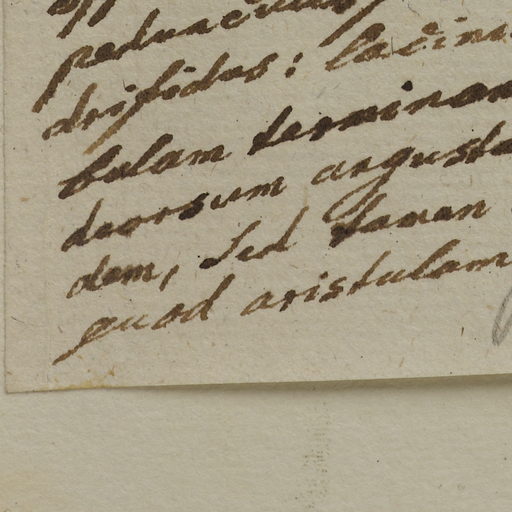 pedunculus
drifidus: lacini
bulam terminan
deorsum angusta
dem, sed tamen
quod aristulam